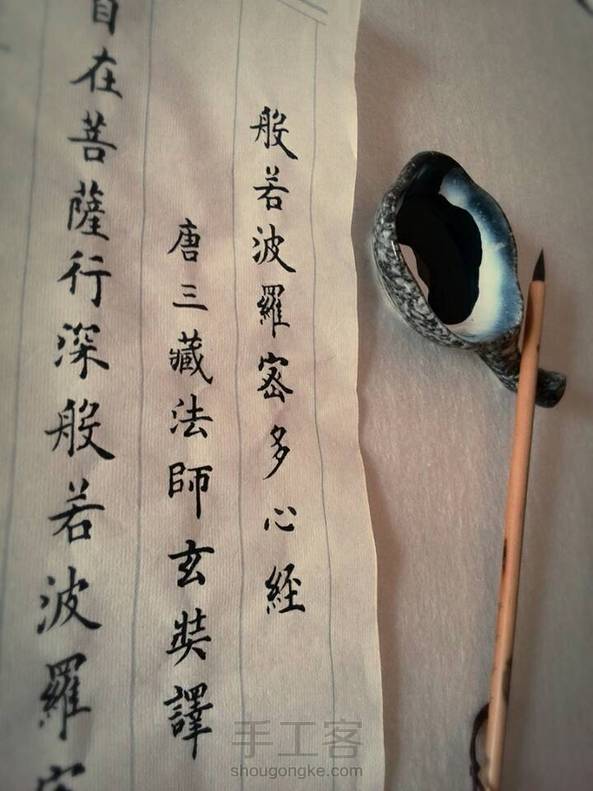 般若波羅蜜多心經
唐三藏法師玄奘譯
自在菩薩行深般若波羅
手工客
shougongke.com